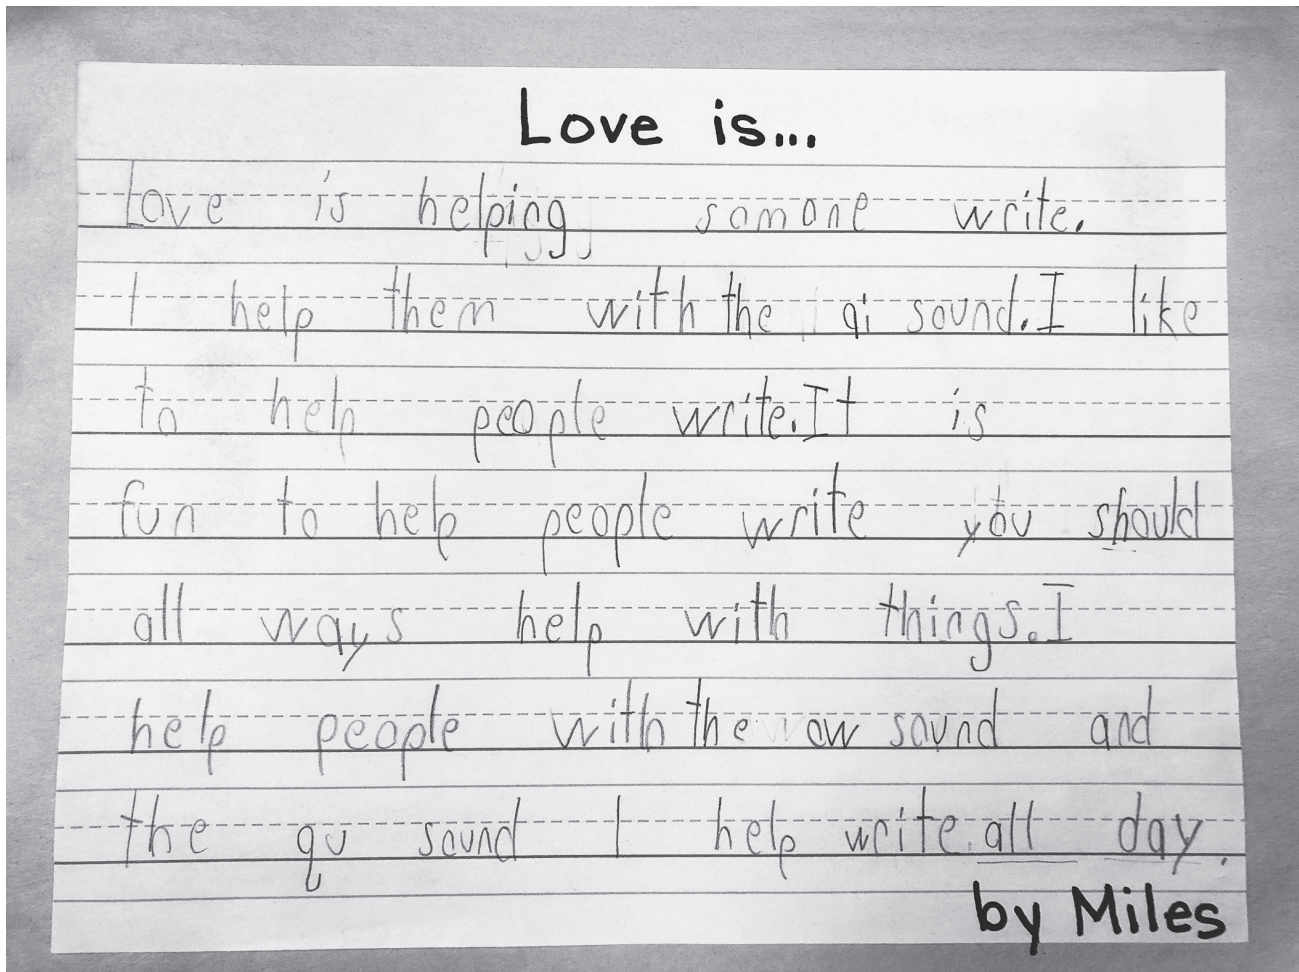 Love is...
Love is helping somone write.
I help them with the ai sound. I like
to help people write. It is
fun to help people write you should
all ways help with things. I
help people with the ow sound and
the qu sound I help write all day.
by Miles